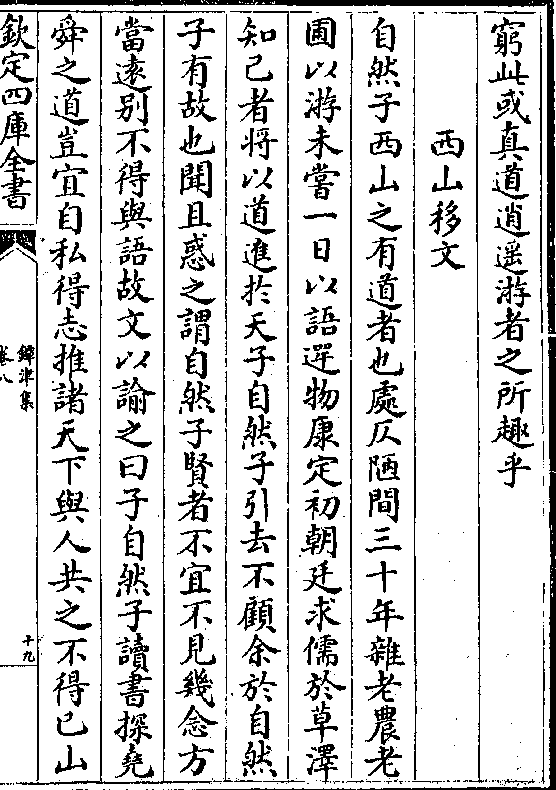 窮此或真道逍遥游者之所趣乎
西山移文
自然子西山之有道者也處仄陋間三十年雜老農老
圃以游未嘗一日以語迕物康定初朝廷求儒於草澤
知己者將以道進於天子自然子引去不顧余於自然
子有故也聞且惑之謂自然子賢者不宜不見幾念方
當逺别不得與語故文以諭之曰子自然子讀書探堯
舜之道豈宜自私得志推諸天下與人共之不得已山
欽定四庫全書
鐔津集
卷八
十九